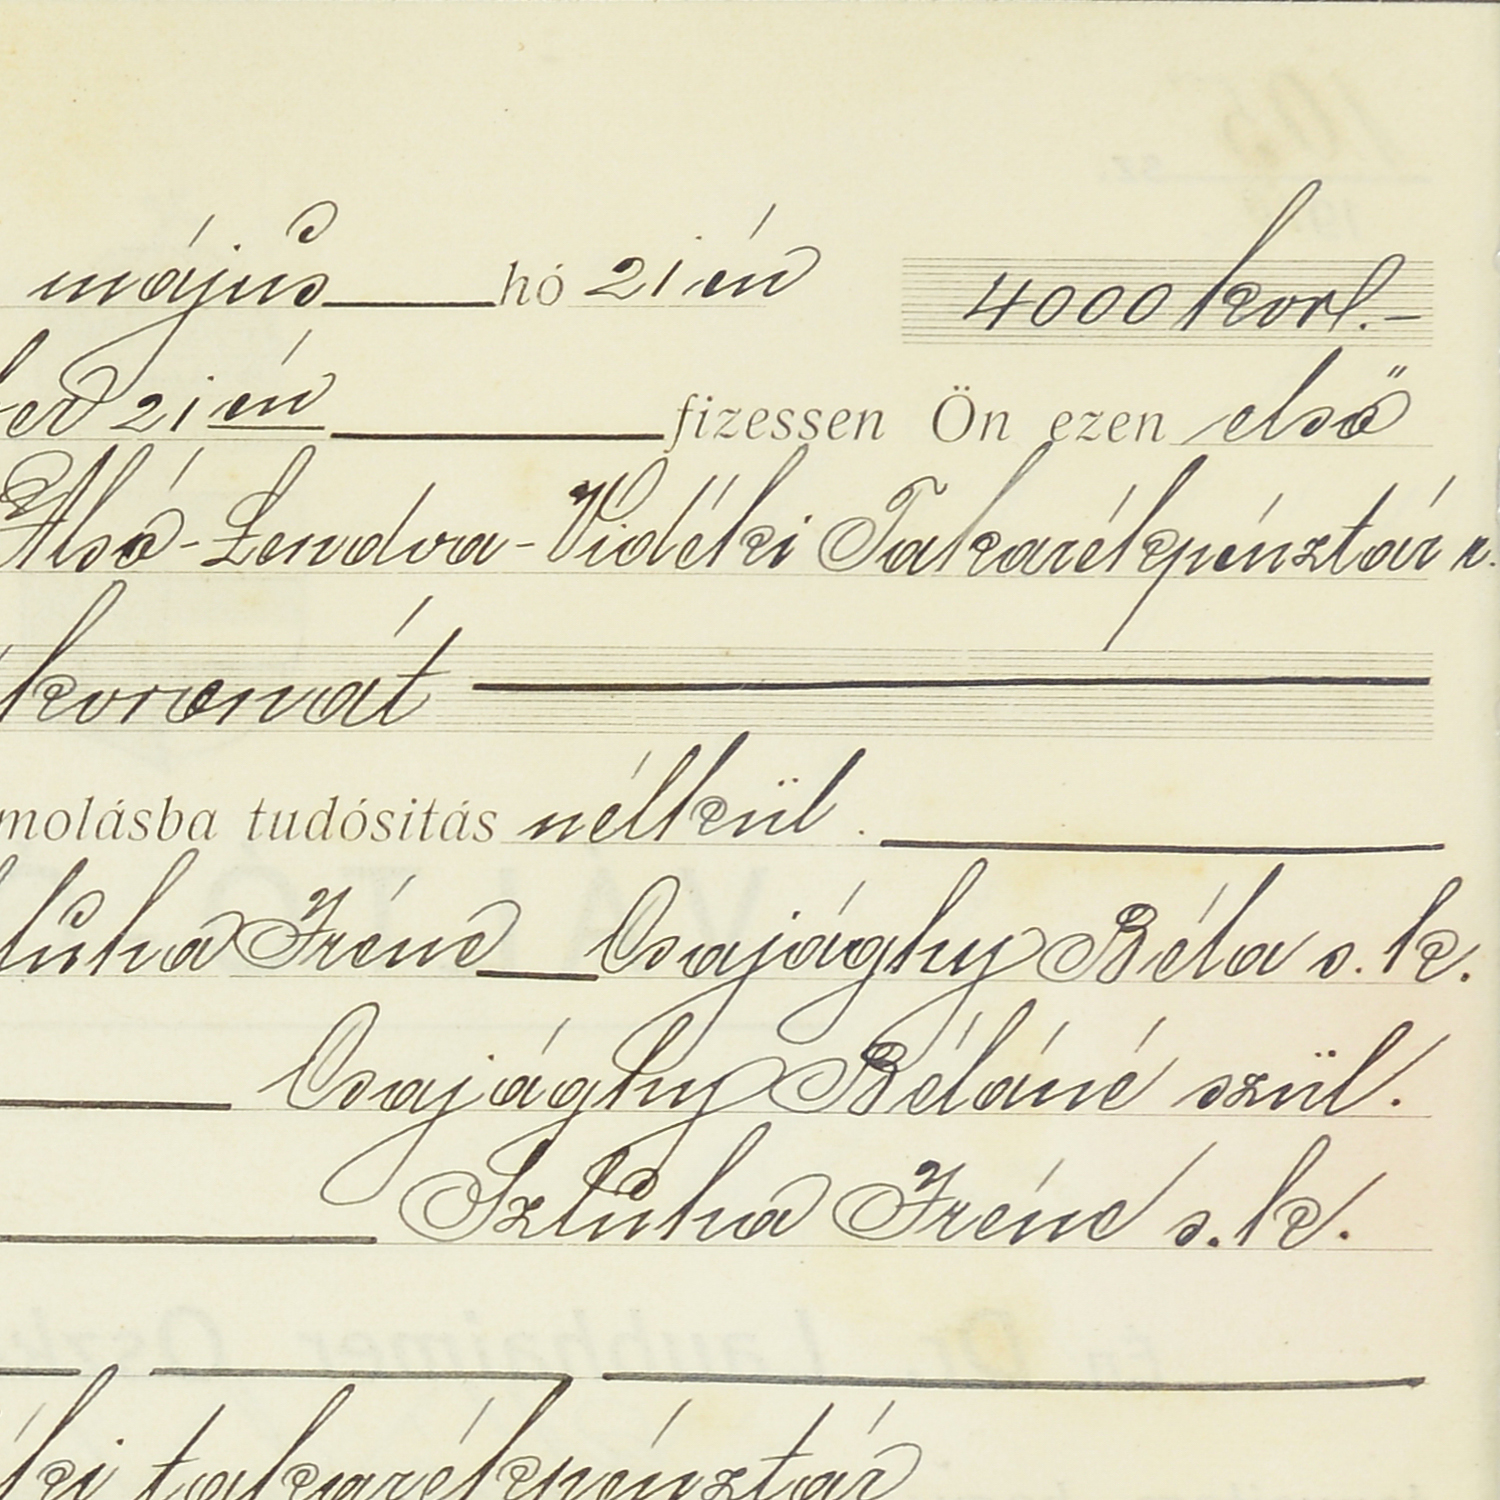 május hó 21én 4000 kor.-
21én fizessen Ön ezen első
Alsó-Lendva-Vidéki Takarékpénztár r.
koronát
molásba tudósitás nélkül.
Iréne Csajághy Béla s.k.
Csajághy Béláné szül.
Sztuha Iréne s.k.
takarékpénztár